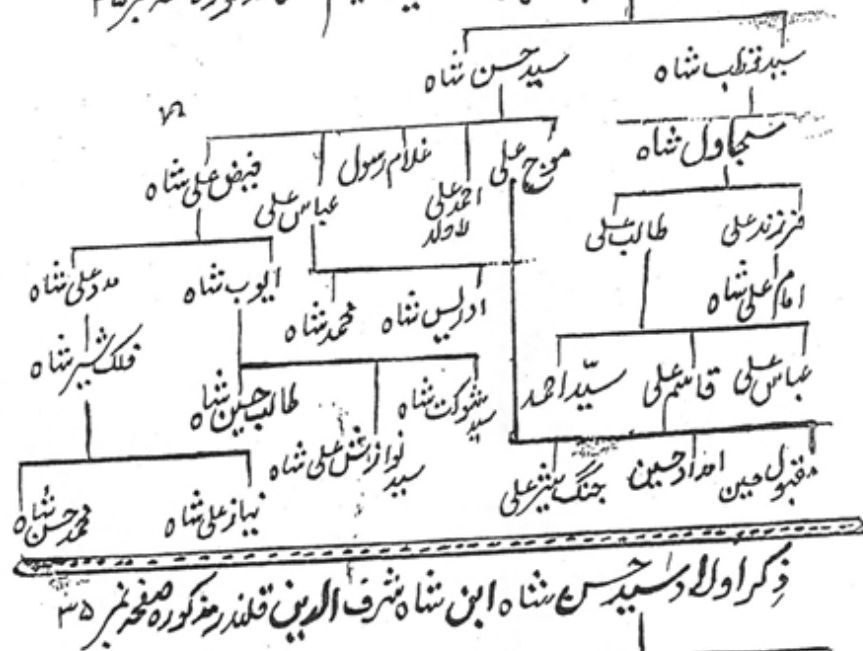 سید نواب شاہ سید حسن شاہ
سجاول شاہ
موج علی احمد علی لاولد غلام رسول عباس علی فیض علی شاہ
فرزند علی طالب علی
امام علی شاہ
ادریس شاہ محمد شاہ ایوب شاہ مدد علی شاہ
عباس علی قاسم علی سید احمد
سید شوکت شاہ سید نوازش علی شاہ طالب حسین شاہ فلک شیر شاہ
مقبول حسین امداد حسین جنگ شیر علی
نیاز علی شاہ محمد حسن شاہ
ذکر اولاد سید حسن شاہ ابن شاہ شرف الدین قلندر مذکورہ صفحہ نمبر ۳۵